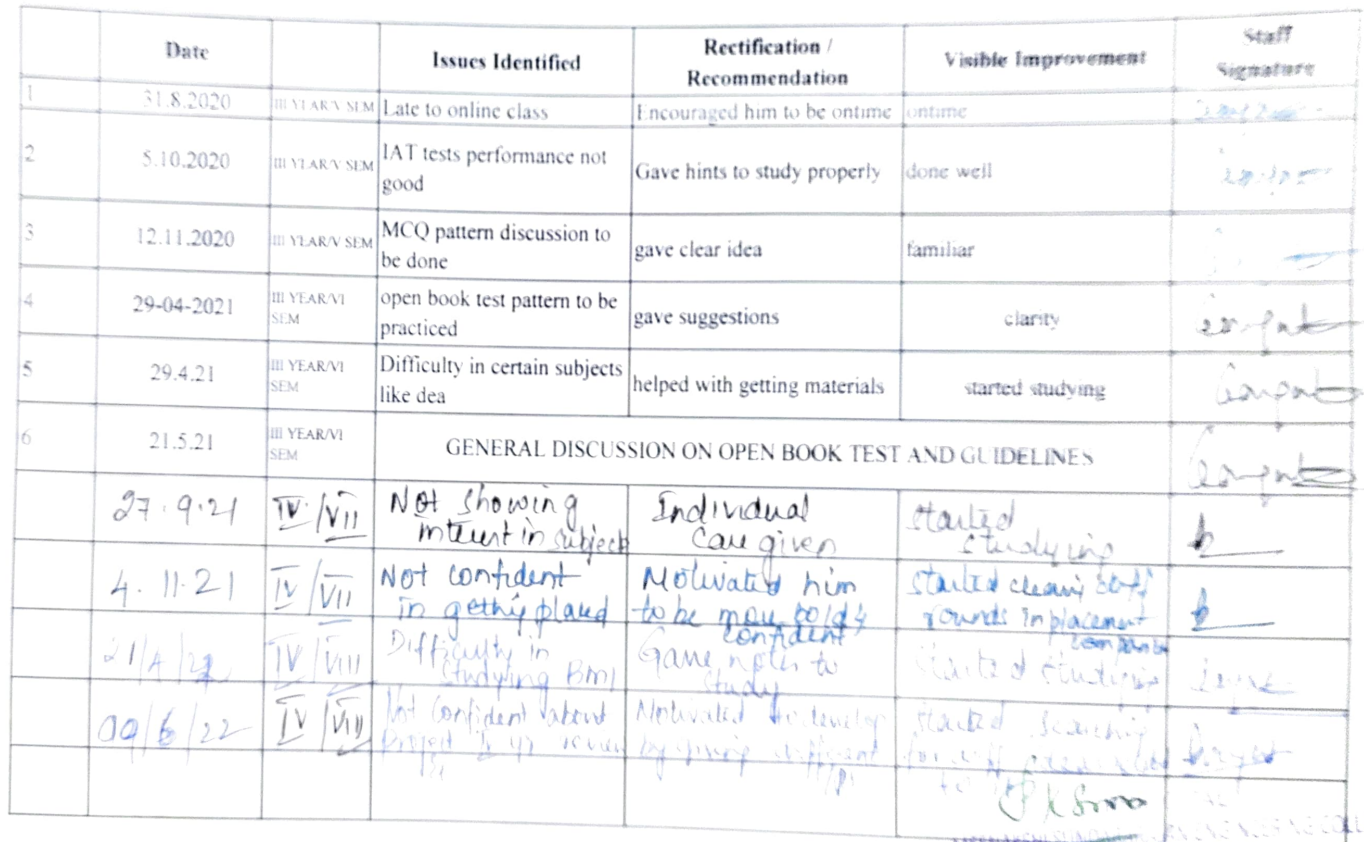 Date Issues Identified Rectification / Recommendation Visible Improvement Staff Signature
1 31.8.2020 III YEAR/V SEM Late to online class Encouraged him to be ontime ontime
2 5.10.2020 III YEAR/V SEM IAT tests performance not good Gave hints to study properly done well
3 12.11.2020 III YEAR/V SEM MCQ pattern discussion to be done gave clear idea familiar
4 29-04-2021 III YEAR/VI SEM open book test pattern to be practiced gave suggestions clarity
5 29.4.21 III YEAR/VI SEM Difficulty in certain subjects like dea helped with getting materials started studying
6 21.5.21 III YEAR/VI SEM GENERAL DISCUSSION ON OPEN BOOK TEST AND GUIDELINES
27.9.21 IV/VII Not showing interest in subject Individual care given started studying
4.11.21 IV/VII Not confident in getting placed Motivated him to be more bold & confident started rounds in placement
21/4/22 IV/VIII Difficulty in studying BMI Gave notes to study started studying
09/6/22 IV/VIII Not confident about project Motivated to develop by giving different started searching for